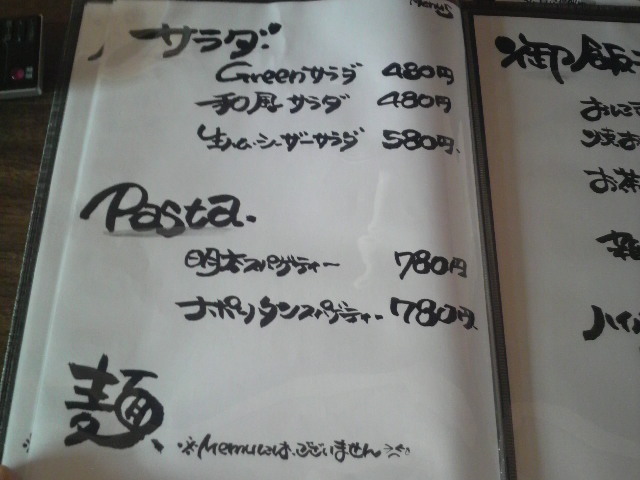 Menu
サラダ
Greenサラダ 480円
和風サラダ 480円
生ハム・シーザーサラダ 580円
Pasta.
明太スパゲティー 780円
ナポリタンスパゲティー 780円
麺、
※Memuにはございません
御飯
おに
焼お
お茶
雑
ハイ